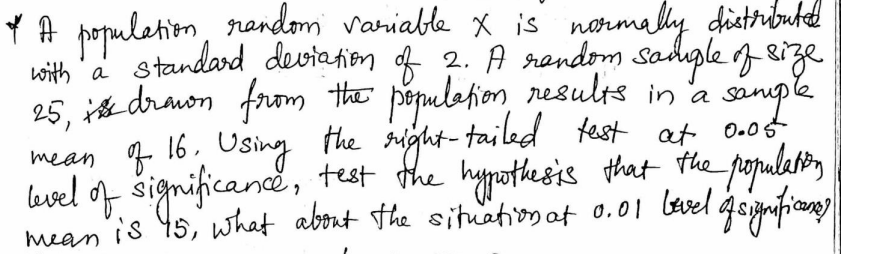 * A population random variable X is normally distributed
with a standard deviation of 2. A random sample of size
25, is drawn from the population results in a sample
mean of 16. Using the right-tailed test at 0.05
level of significance, test the hypothesis that the population
mean is 15, what about the situation at 0.01 level of significance?